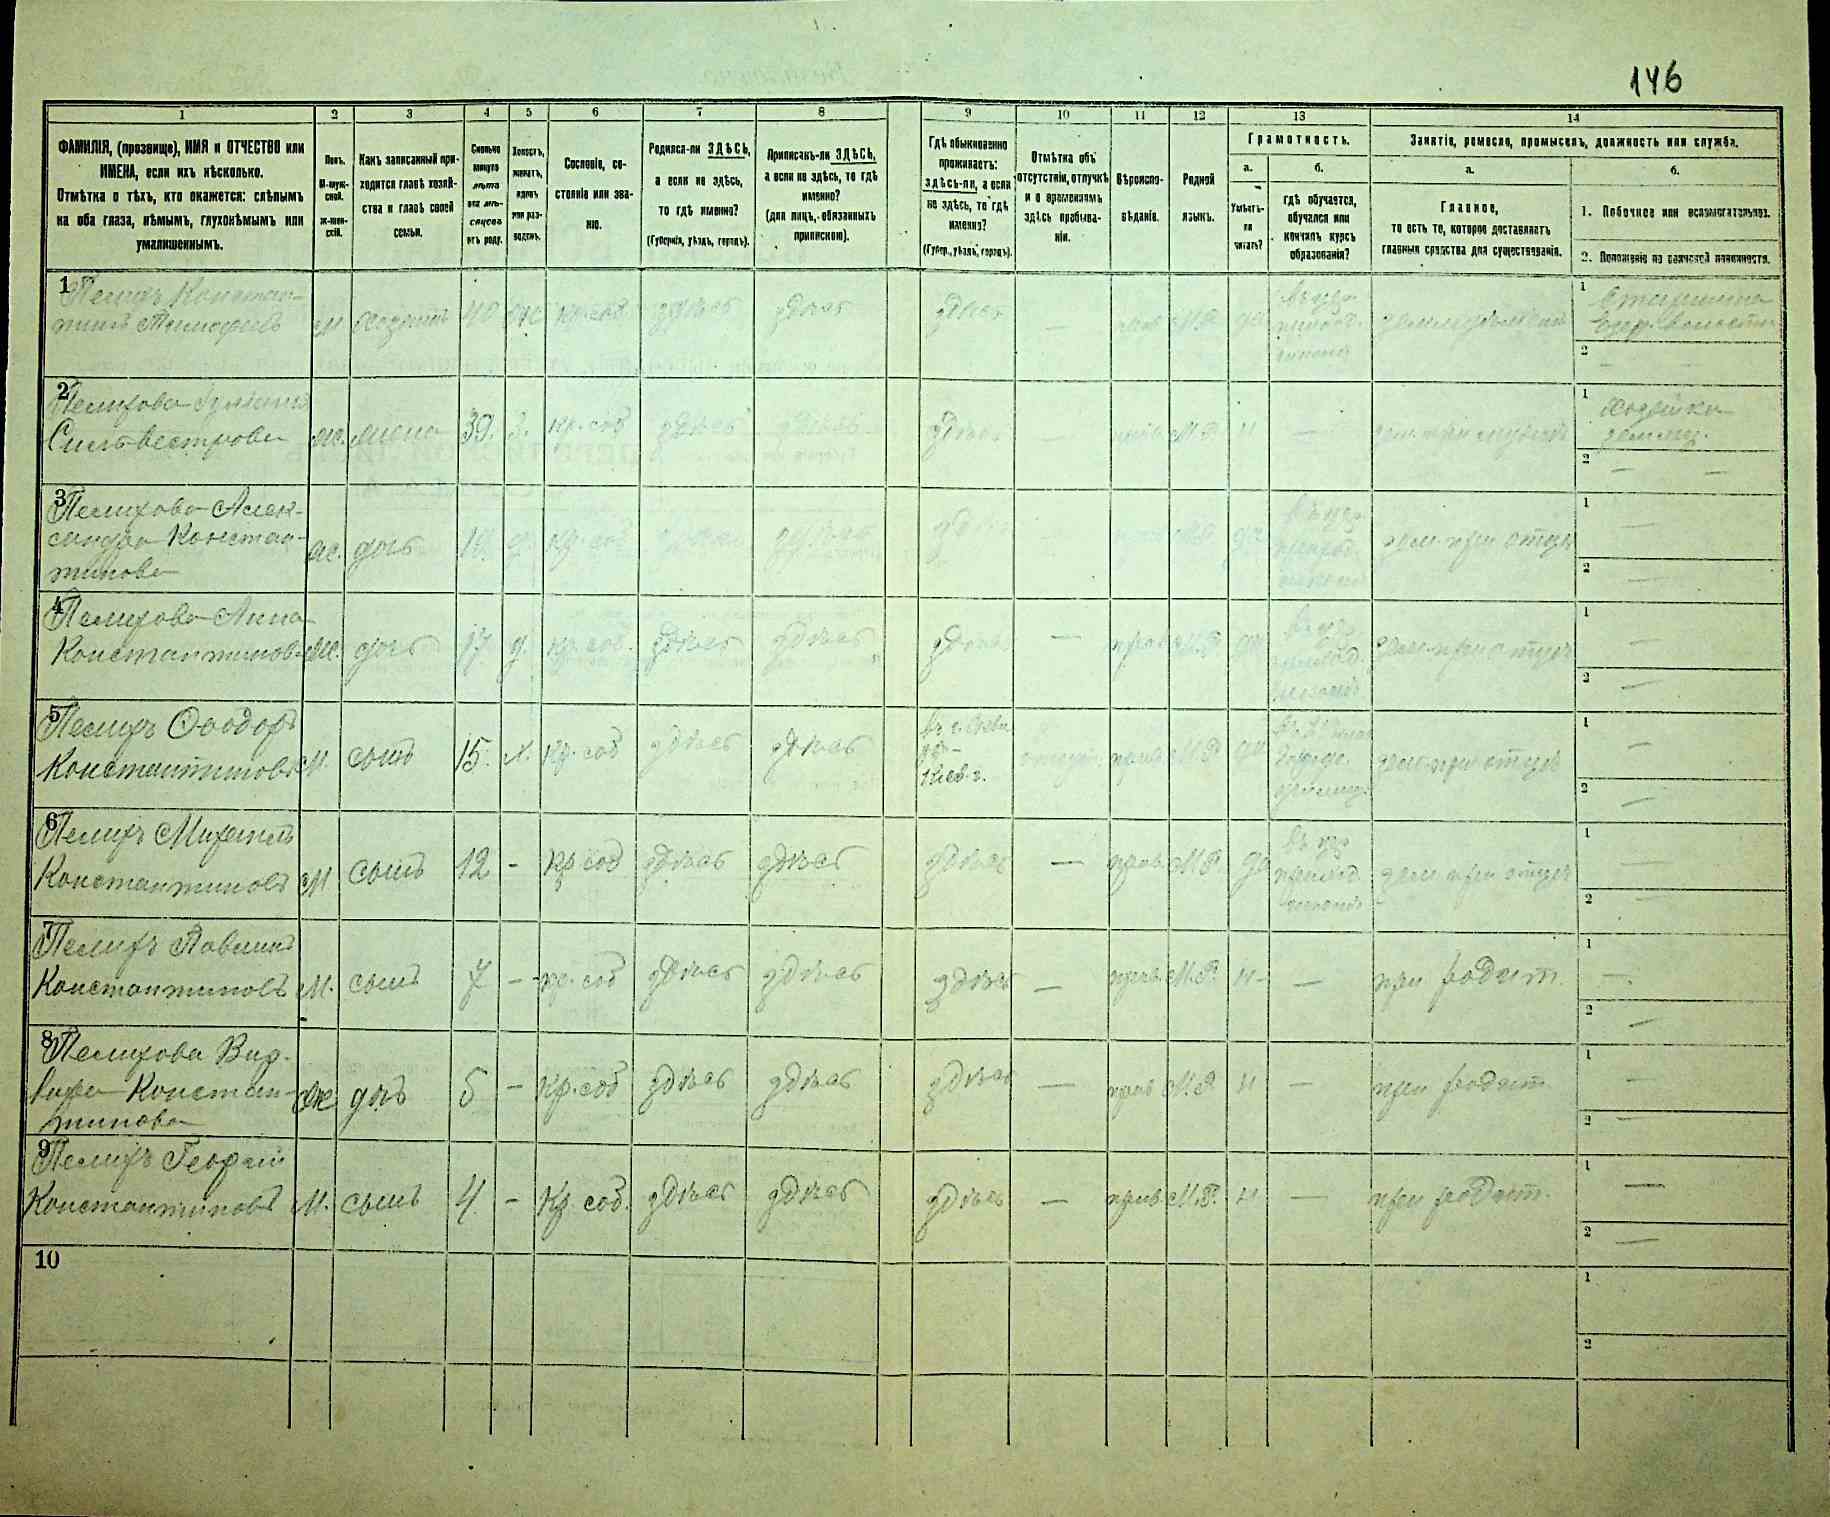 146
1
2
3
4
5
6
7
8
9
10
11
12
13
14
ФАМИЛІЯ, (прозвище), ИМЯ и ОТЧЕСТВО или
ИМЕНА, если ихъ нѣсколько.
Отмѣтка о тѣхъ, кто окажется: слѣпымъ
на оба глаза, нѣмымъ, глухонѣмымъ или
умалишеннымъ.
Полъ.
М-муж-
ской.
ж-жен-
скій.
Какъ записанный при-
ходится главѣ хозяй-
ства и главѣ своей
семьи.
Сколько
минуло
лѣтъ
или мѣ-
сяцевъ
отъ роду.
Холостъ,
женатъ,
вдовъ
или раз-
веденъ.
Сословіе, со-
стояніе или зва-
ніе.
Родился-ли ЗДѢСЬ,
а если не здѣсь,
то гдѣ именно?
(Губернія, уѣздъ, городъ).
Приписанъ-ли ЗДѢСЬ,
а если не здѣсь, то гдѣ
именно?
(для лицъ, обязанныхъ
припискою).
Гдѣ обыкновенно
проживаетъ:
ЗДѢСЬ-ЛИ, а если
не здѣсь, то гдѣ
именно?
(Губер., уѣздъ, городъ).
Отмѣтка объ
отсутствіи, отлучкѣ
и о временномъ
здѣсь пребыва-
ніи.
Вѣроиспо-
вѣданіе.
Родной
языкъ.
Грамотность.
а.
Умѣетъ-
ли
читать?
б.
гдѣ обучается,
обучался или
кончилъ курсъ
образованія?
Занятіе, ремесло, промыселъ, должность или служба.
а.
Главное,
то есть то, которое доставляетъ
главныя средства для существованія.
б.
1. Побочное или вспомогательное.
2. Положеніе по воинской повинности.
1
Пелихъ Констан-
тинъ
м хозяинъ 40 ж кр. соб здѣсь здѣсь здѣсь — прав М.Р. да
1 Старшина
2 —
2
Пелихова
Сильвестрова ж. жена 39. з. кр. соб здѣсь здѣсь здѣсь прав М.Р. н — зем. при мужѣ
1 хозяйка
2 — —
3
Пелихова Алек-
сандра Констан-
тинова ж. дочь д. кр. соб здѣсь да зем. при отцѣ
1 —
2 —
4
Пелихова Анна
Константинова ж. дочь 17 д. кр. соб. здѣсь здѣсь здѣсь — прав М.Р. да зем. при отцѣ
1 —
2 —
5
Пелихъ Ѳеодоръ
Константиновъ м. сынъ 15. х. кр. соб здѣсь здѣсь
Кіев. г. прав М.Р. да зем. при отцѣ
1 —
2 —
6
Пелихъ Михаилъ
Константиновъ м сынъ 12 - кр соб здѣсь здѣсь здѣсь — прав М.Р. да зем при отцѣ
1 —
2 —
7
Пелихъ Павлинъ
Константиновъ м. сынъ 7 — кр. соб здѣсь здѣсь здѣсь — прав М.Р. н — при родит.
1 —
2 —
8
Пелихова Вар-
вара Констан-
тинова ж дочь 5 — кр. соб здѣсь здѣсь здѣсь — прав М.Р. н — при родит
1 —
2 —
9
Пелихъ Георгій
Константиновъ м. сынъ 4 - кр соб. здѣсь здѣсь здѣсь — прав М.Р. н — при родит.
1 —
2 —
10
1
2